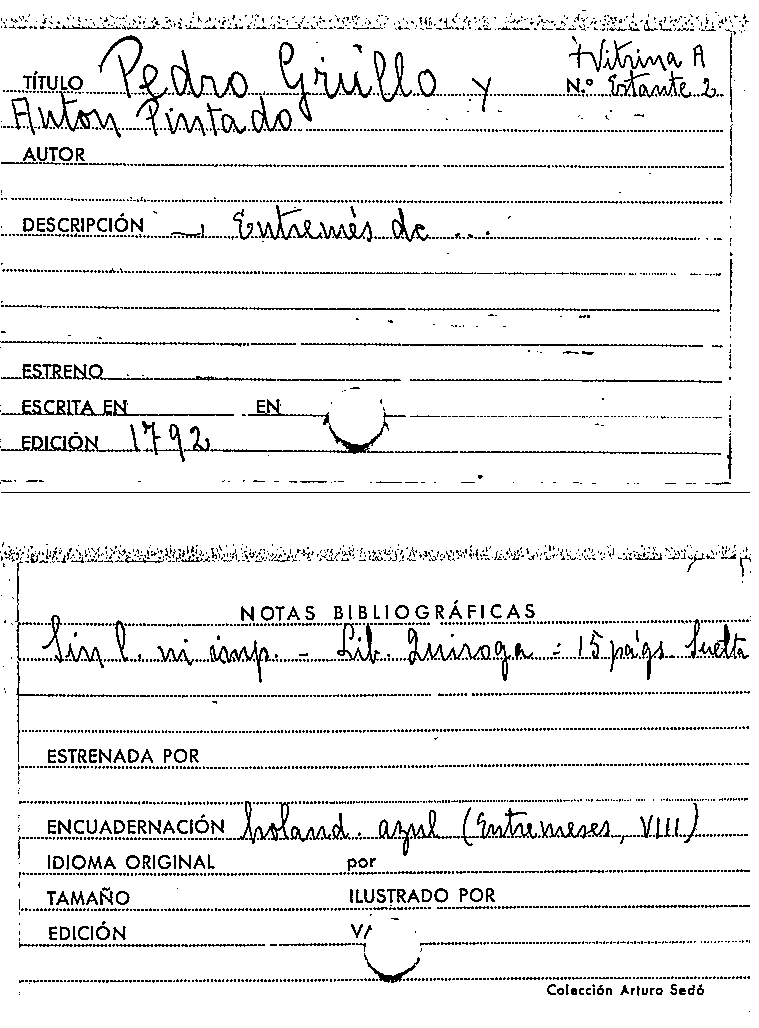 Vitrina A
TÍTULO Pedro Grullo y N.º Estante 2
Anton Pintado
AUTOR
DESCRIPCIÓN — Entremés de ...
ESTRENO
ESCRITA EN EN
EDICIÓN 1792
NOTAS BIBLIOGRÁFICAS
Sin l. ni imp. - Lib. Quiroga = 15 págs. Suelta
ESTRENADA POR
ENCUADERNACIÓN holand. azul (Entremeses, VIII)
IDIOMA ORIGINAL por
TAMAÑO ILUSTRADO POR
EDICIÓN
Colección Arturo Sedó